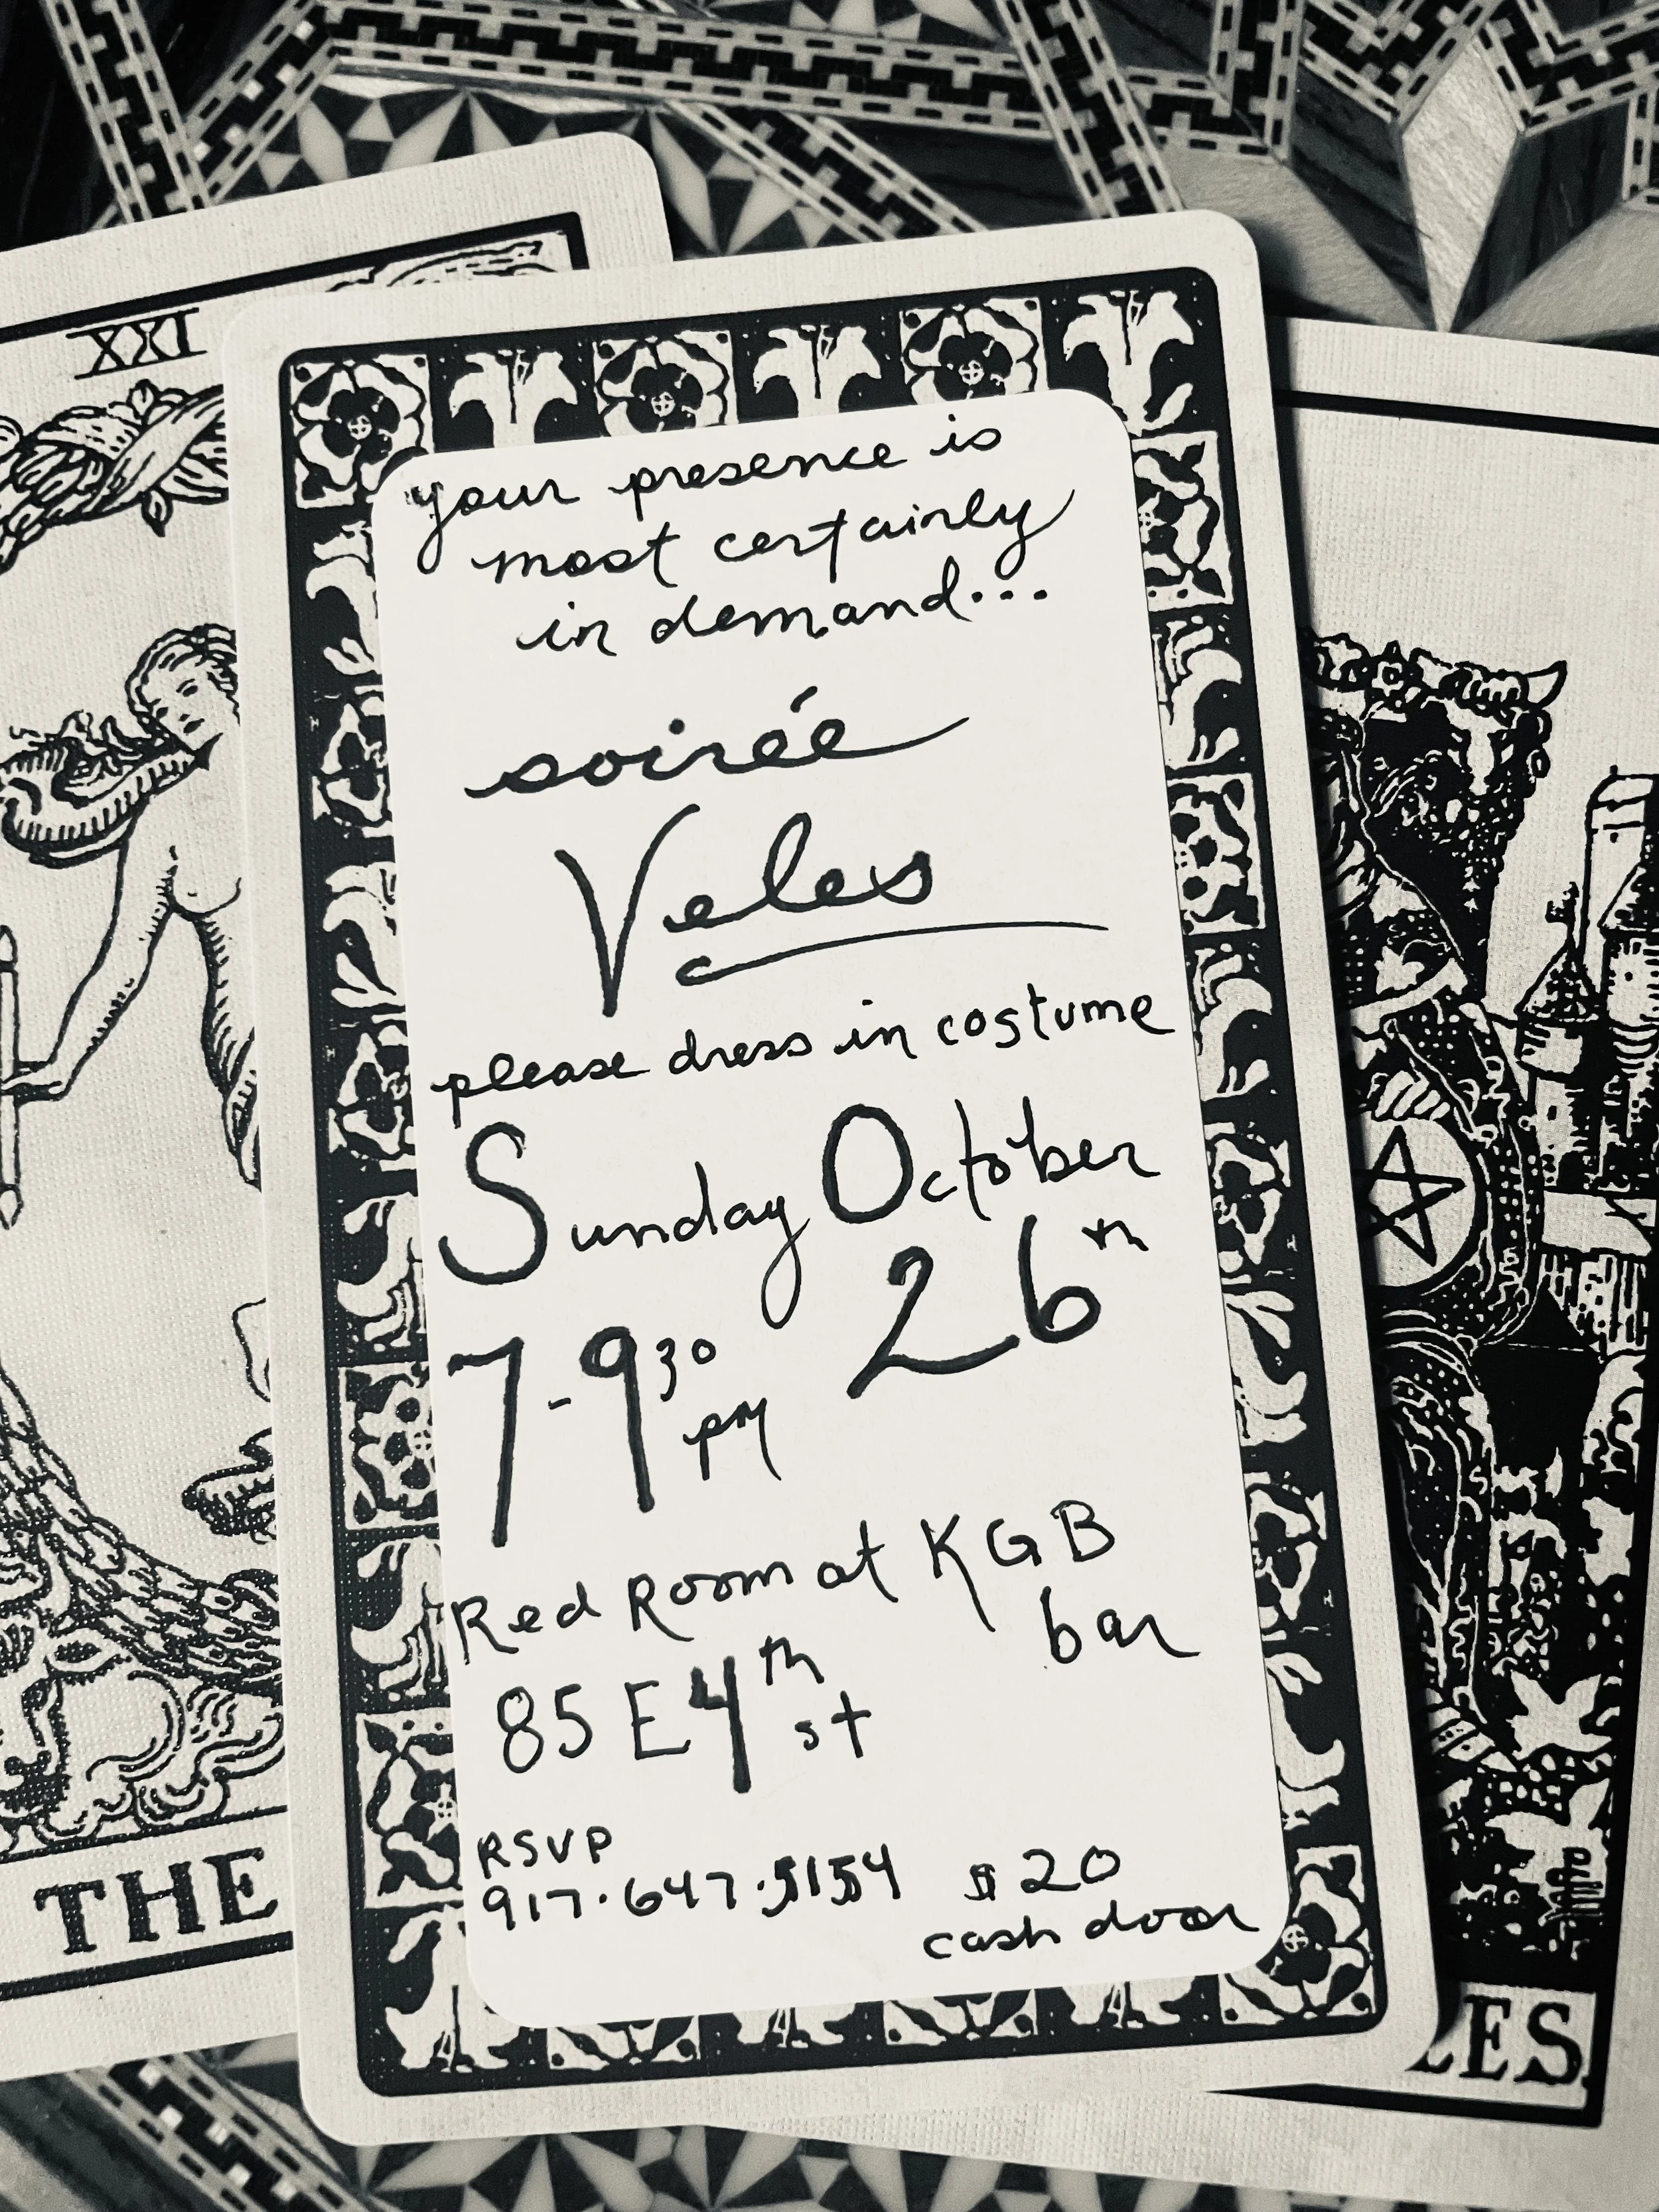 XXI
your presence is
most certainly
in demand...
soirée
Veles
please dress in costume
Sunday October
26th
7-9 30
pm
Red Room at KGB
bar
85 E 4th
st
RSVP
917.647.5154
$20
cash door
THE
LES